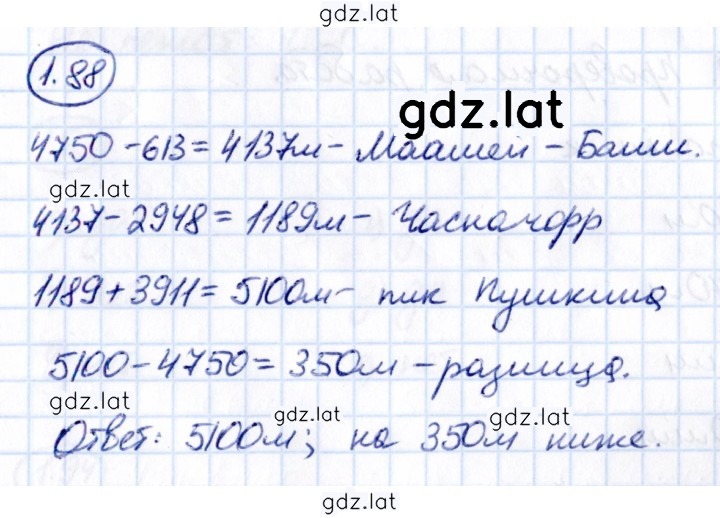 gdz.lat
1.88
gdz.lat
4750 - 613 = 4137м - Маашей - Баши.
gdz.lat
4137 - 2948 = 1189м - Часначорр
1189 + 3911 = 5100м - пик Пушкина
5100 - 4750 = 350м - разница.
gdz.lat
gdz.lat
gdz.lat
Ответ: 5100м; на 350м ниже.
gdz.lat